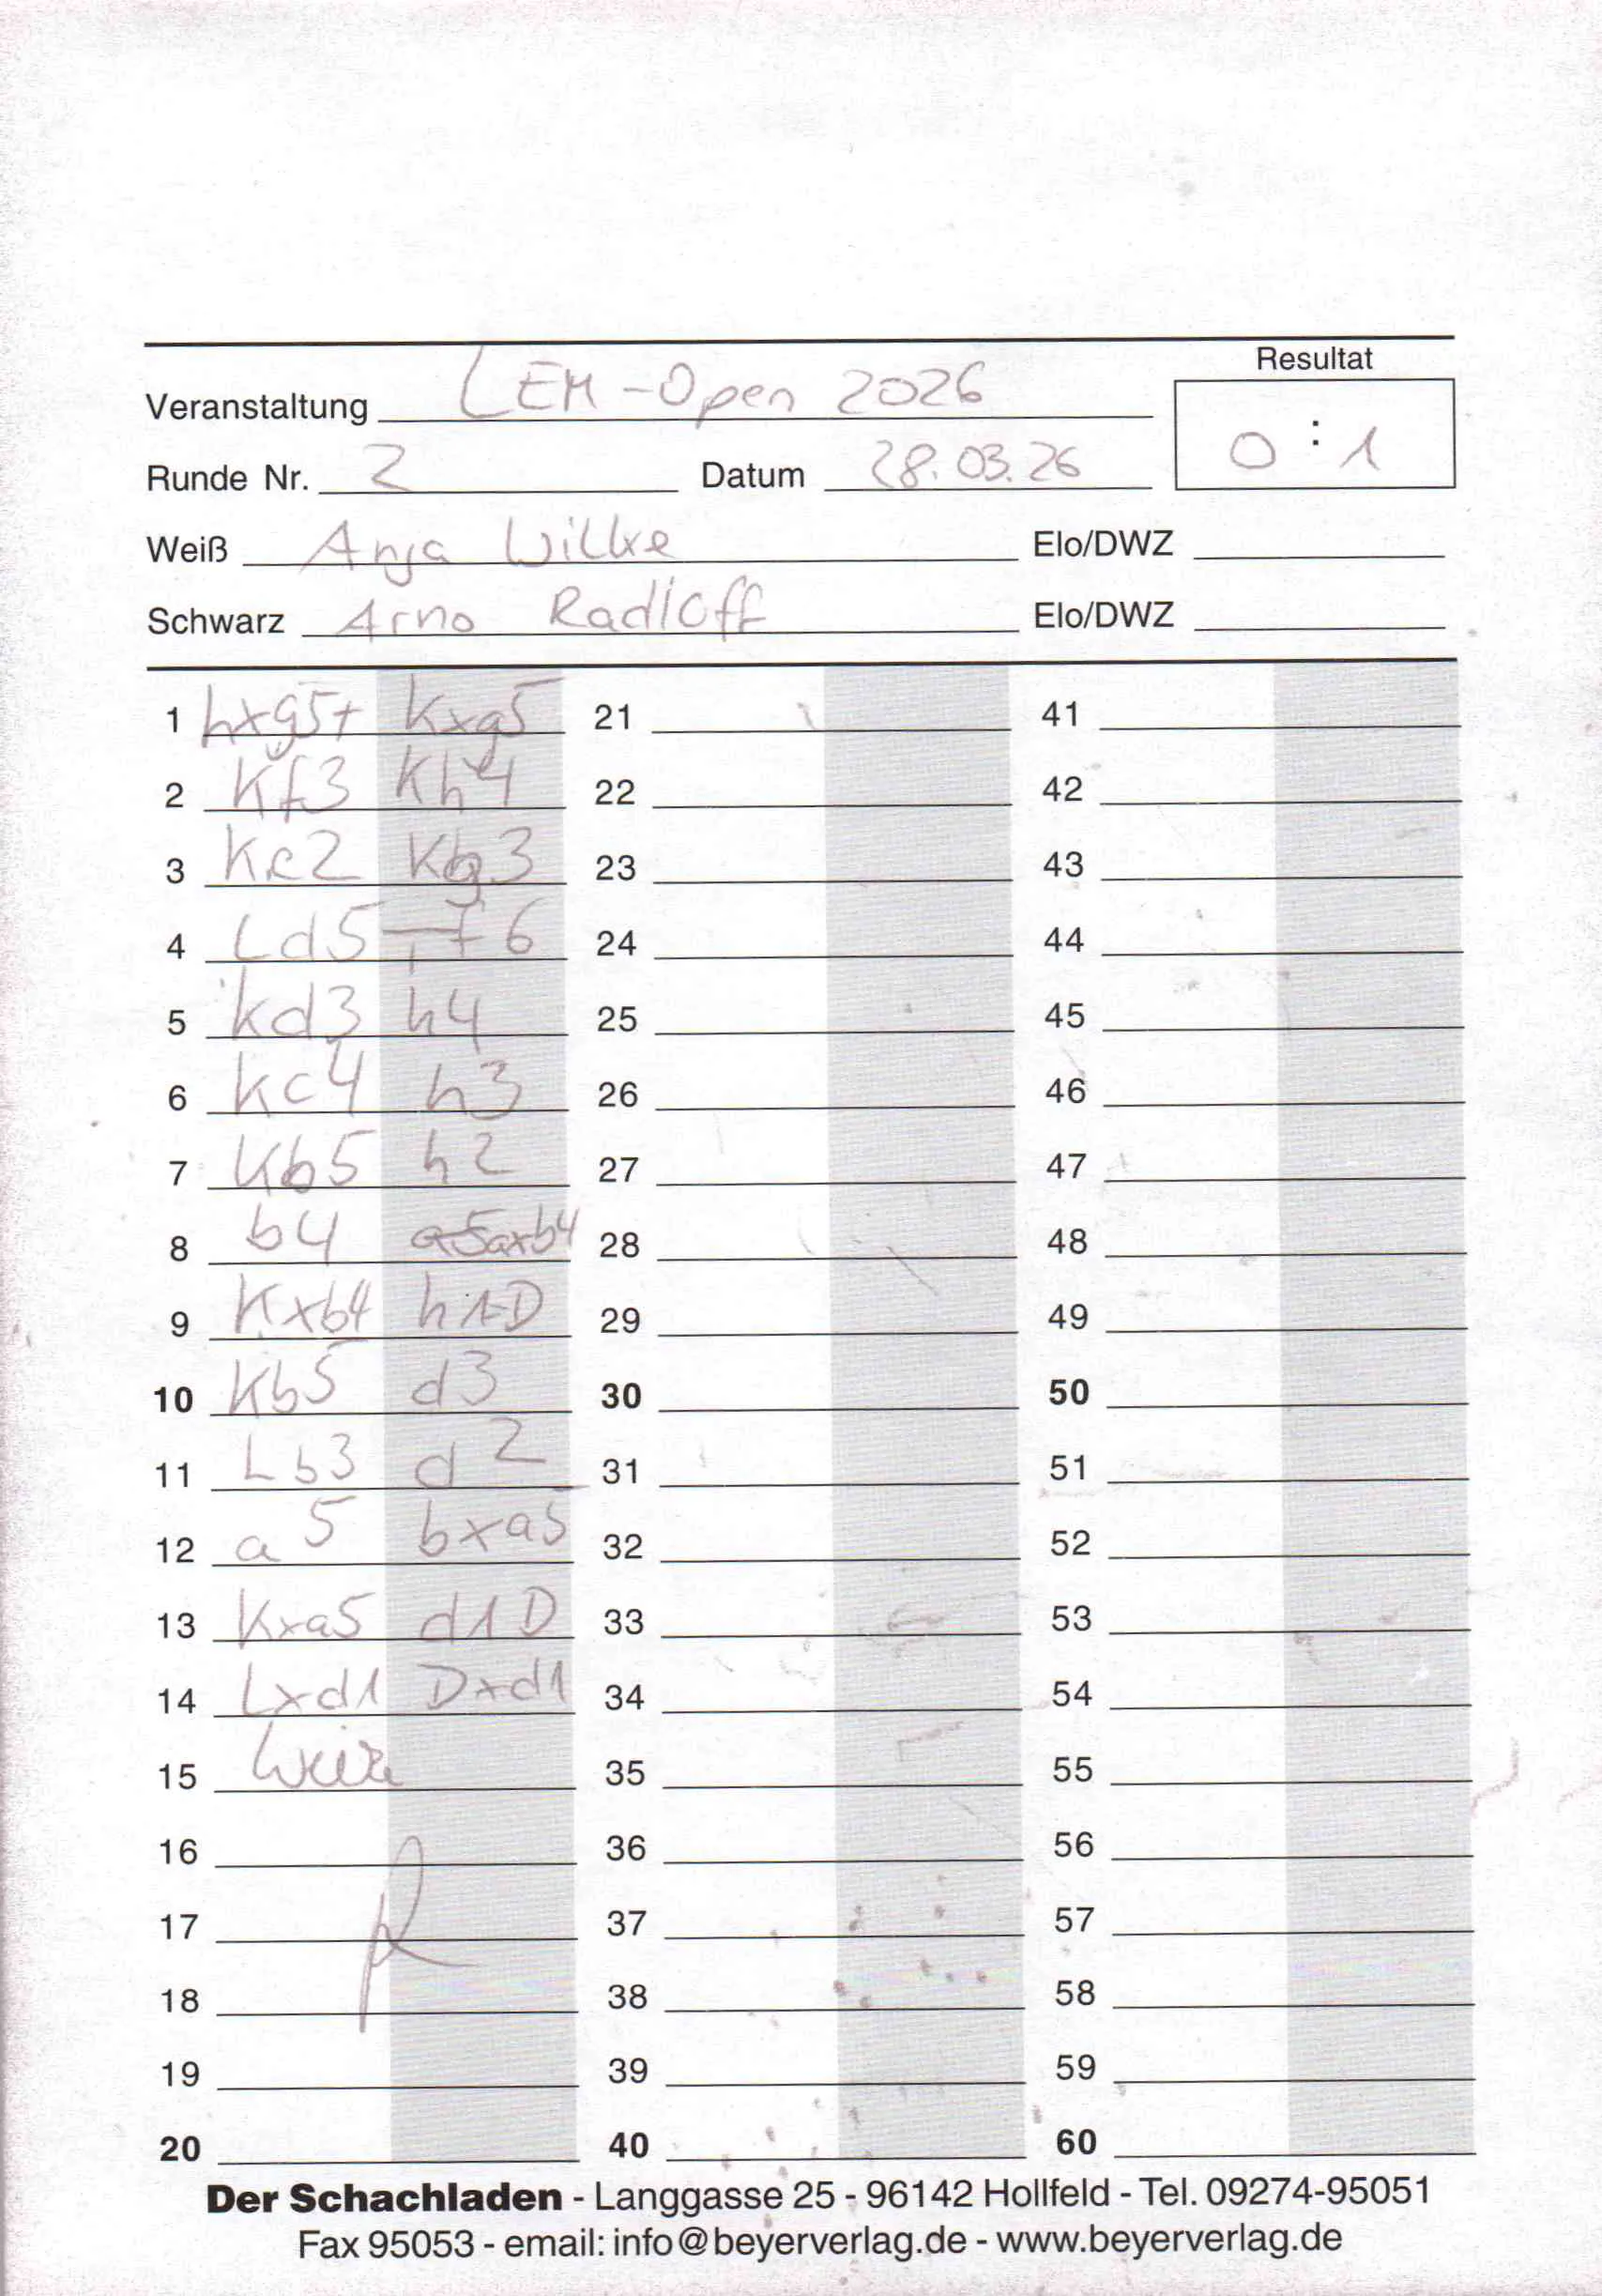 Resultat
Veranstaltung LEM-Open 2026
0 : 1
Runde Nr. 2 Datum 28.03.26
Weiß Anja Wilke Elo/DWZ
Schwarz Arno Radloff Elo/DWZ
1 hxg5+ Kxg5 21 41
2 Kf3 Kh4 22 42
3 Ke2 Kg3 23 43
4 Ld5 f6 24 44
5 Kd3 h4 25 45
6 Kc4 h3 26 46
7 Kb5 h2 27 47
8 b4 a5axb4 28 48
9 Kxb4 h1D 29 49
10 Kb5 d3 30 50
11 Lb3 d2 31 51
12 a5 bxa5 32 52
13 Kxa5 d1D 33 53
14 Lxd1 Dxd1 34 54
15 35 55
16 36 56
17 37 57
18 38 58
19 39 59
20 40 60
Der Schachladen - Langgasse 25 - 96142 Hollfeld - Tel. 09274-95051
Fax 95053 - email: info@beyerverlag.de - www.beyerverlag.de